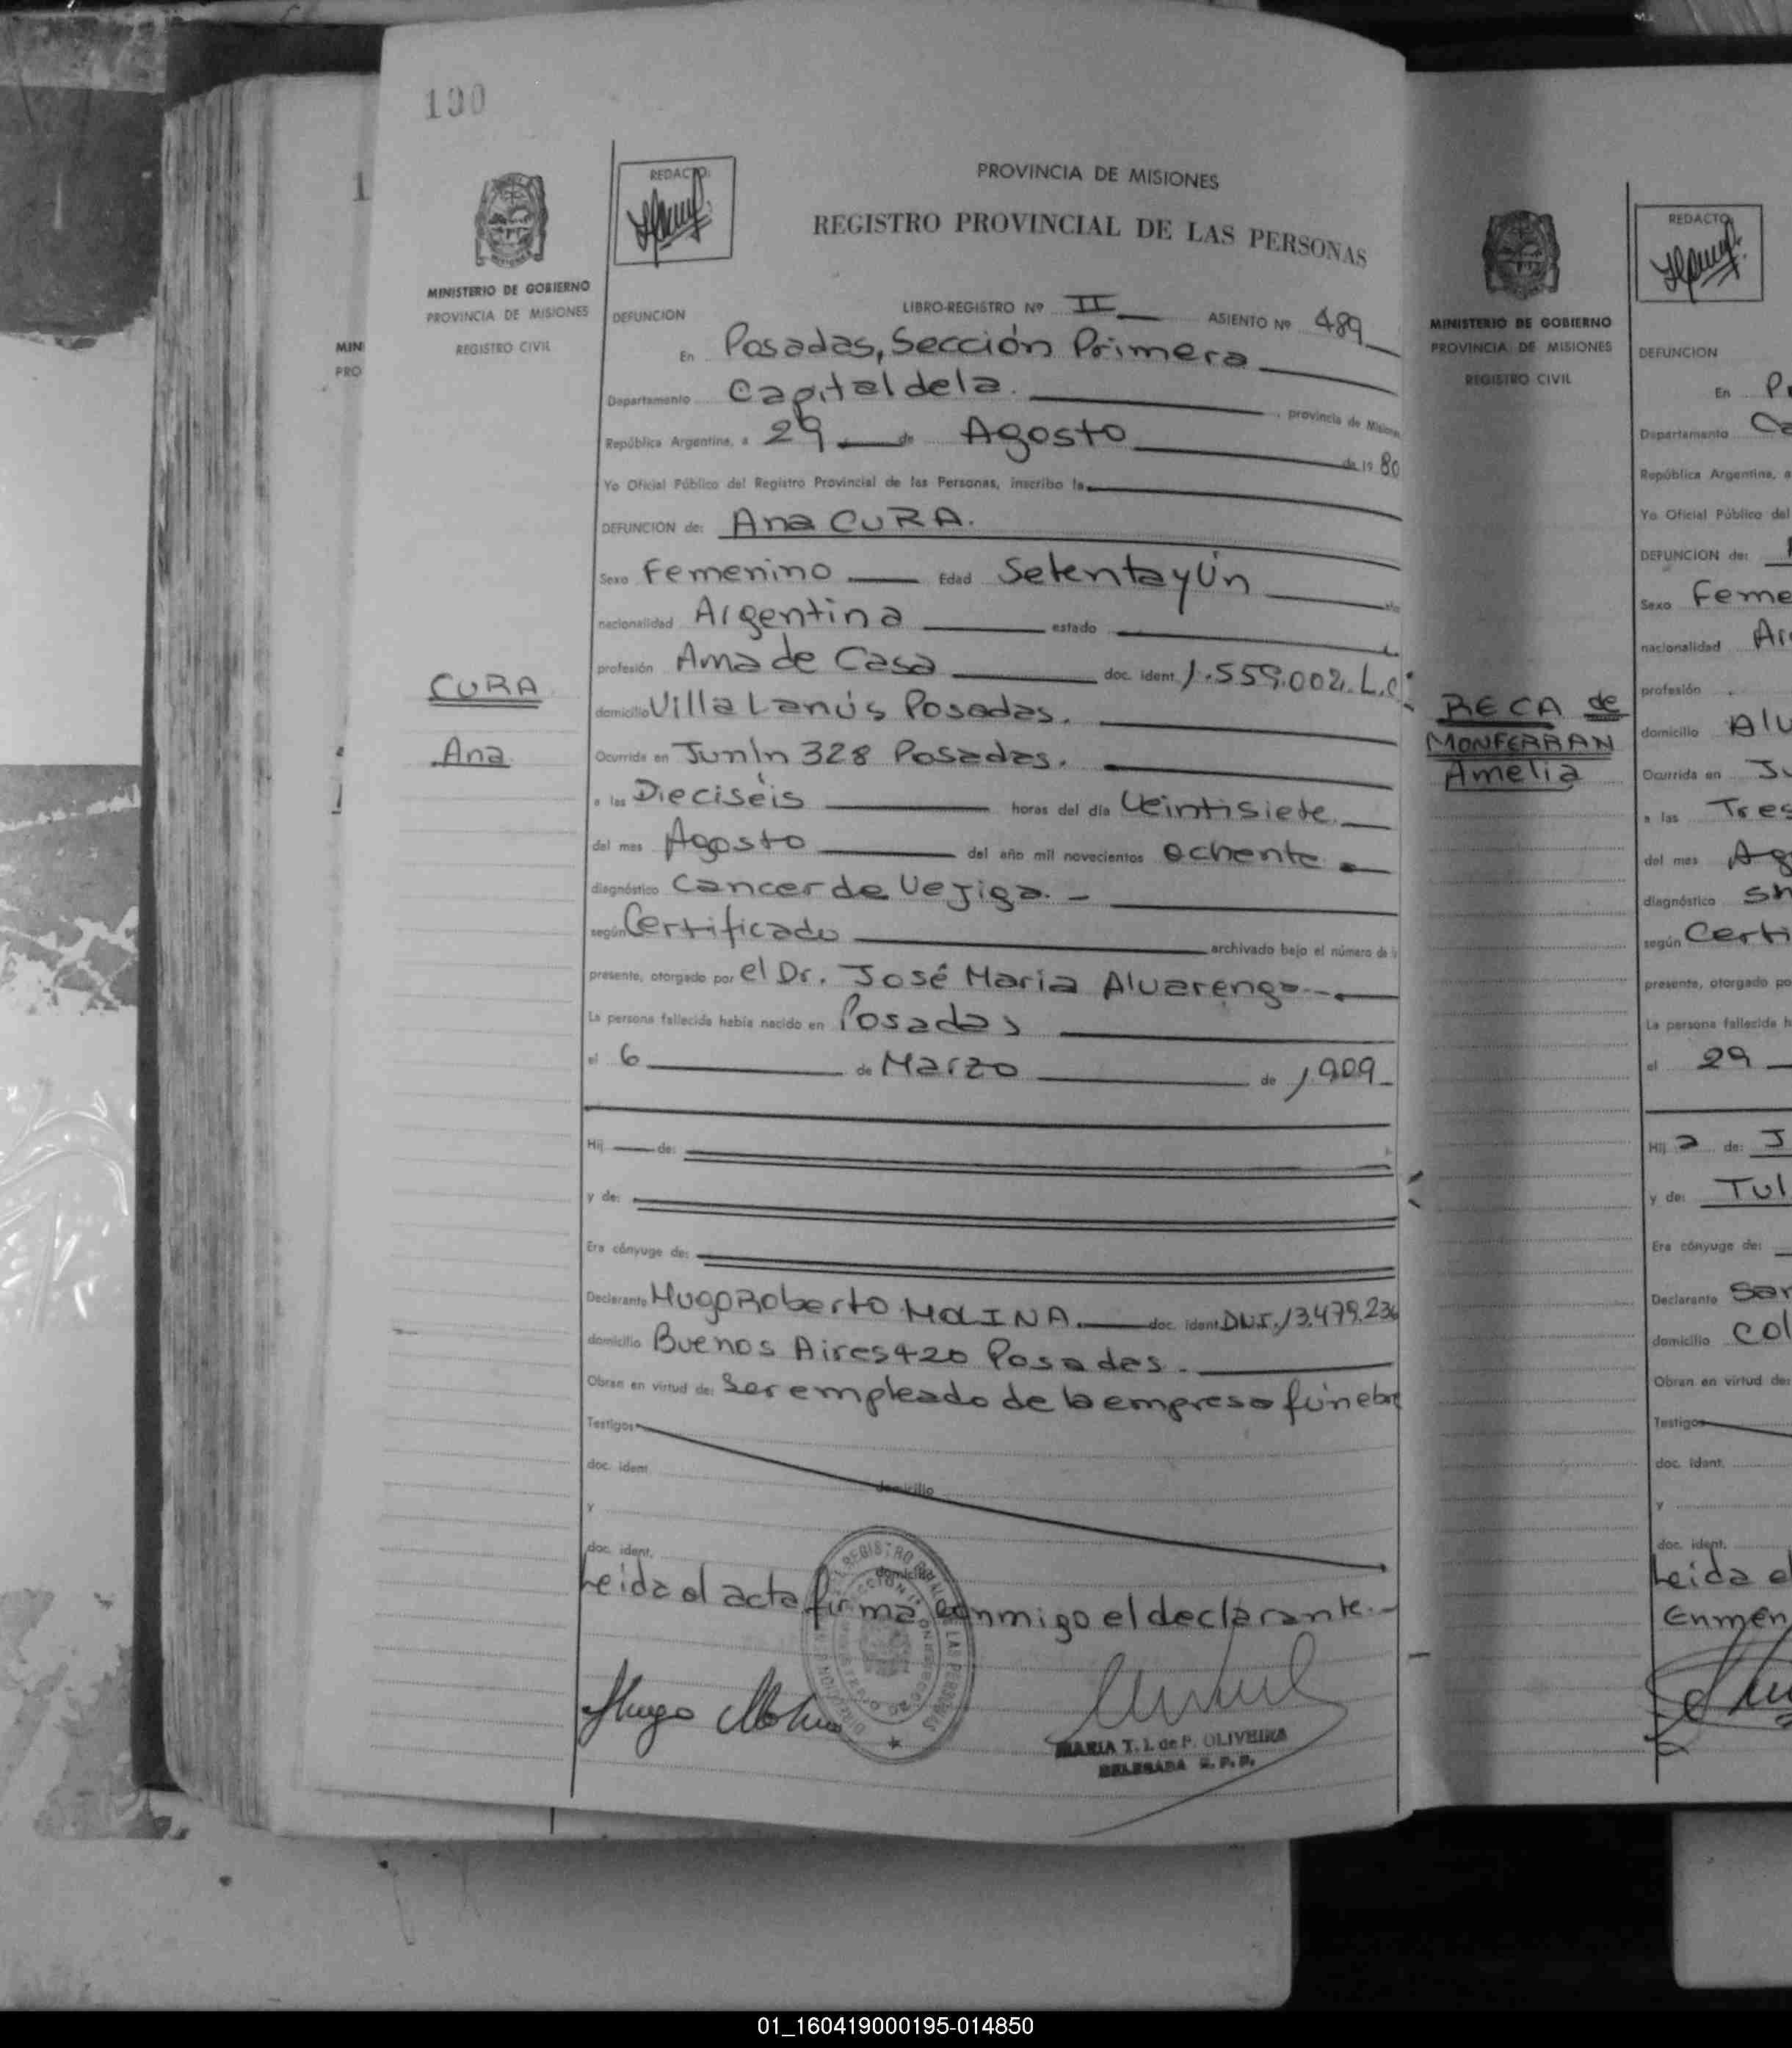 100
REDACTO:
PROVINCIA DE MISIONES
REGISTRO PROVINCIAL DE LAS PERSONAS
MINISTERIO DE GOBIERNO
PROVINCIA DE MISIONES
REGISTRO CIVIL
DEFUNCION LIBRO-REGISTRO Nº II ASIENTO Nº 489
En Posadas, Sección Primera
Departamento Capital de la. , provincia de Misiones
República Argentina, a 29 de Agosto de 19 80
Yo Oficial Público del Registro Provincial de las Personas, inscribo la
DEFUNCION de: Ana CURA.
Sexo Femenino Edad Setenta y Un
nacionalidad Argentina estado
profesión Ama de Casa doc. ident. 1.559.002. L.C
domicilio Villa Lanús Posadas.
Ocurrida en Junín 328 Posadas.
a las Dieciséis horas del día Veintisiete.
del mes Agosto del año mil novecientos ochenta
diagnóstico Cancer de Vejiga. -
según Certificado archivado bajo el número de la
presente, otorgado por el Dr. José Maria Alvarenga
La persona fallecida había nacido en Posadas
el 6 de Marzo de 1.909
Hij de:
y de:
Era cónyuge de:
Declarante Hugo Roberto MOLINA. doc. ident. D.N.I. 13.479.236
domicilio Buenos Aires 420 Posadas.
Obran en virtud de: Ser empleado de la empresa fúnebre
Testigos
doc. ident. domicilio
y
doc. ident. domicilio
Leida el acta firma conmigo el declarante.-
CURA
Ana
Hugo Molina
MARIA T. I. de P. OLIVEIRA
DELEGADA R. P. P.
REDACTO:
MINISTERIO DE GOBIERNO
PROVINCIA DE MISIONES
REGISTRO CIVIL
RECA de
MONFERRAN
Amelia
DEFUNCION
En
Departamento
República Argentina, a
Yo Oficial Público del
DEFUNCION de:
Sexo Feme
nacionalidad
profesión
domicilio
Ocurrida en
a las Tres
del mes
diagnóstico
según Certi
presente, otorgado po
La persona fallecida h
el 29
Hij a de: J
y de: Tul
Era cónyuge de:
Declarante
domicilio Col
Obran en virtud de:
Testigos
doc. ident.
y
doc. ident.
Leida el
Enmen
01_160419000195-014850